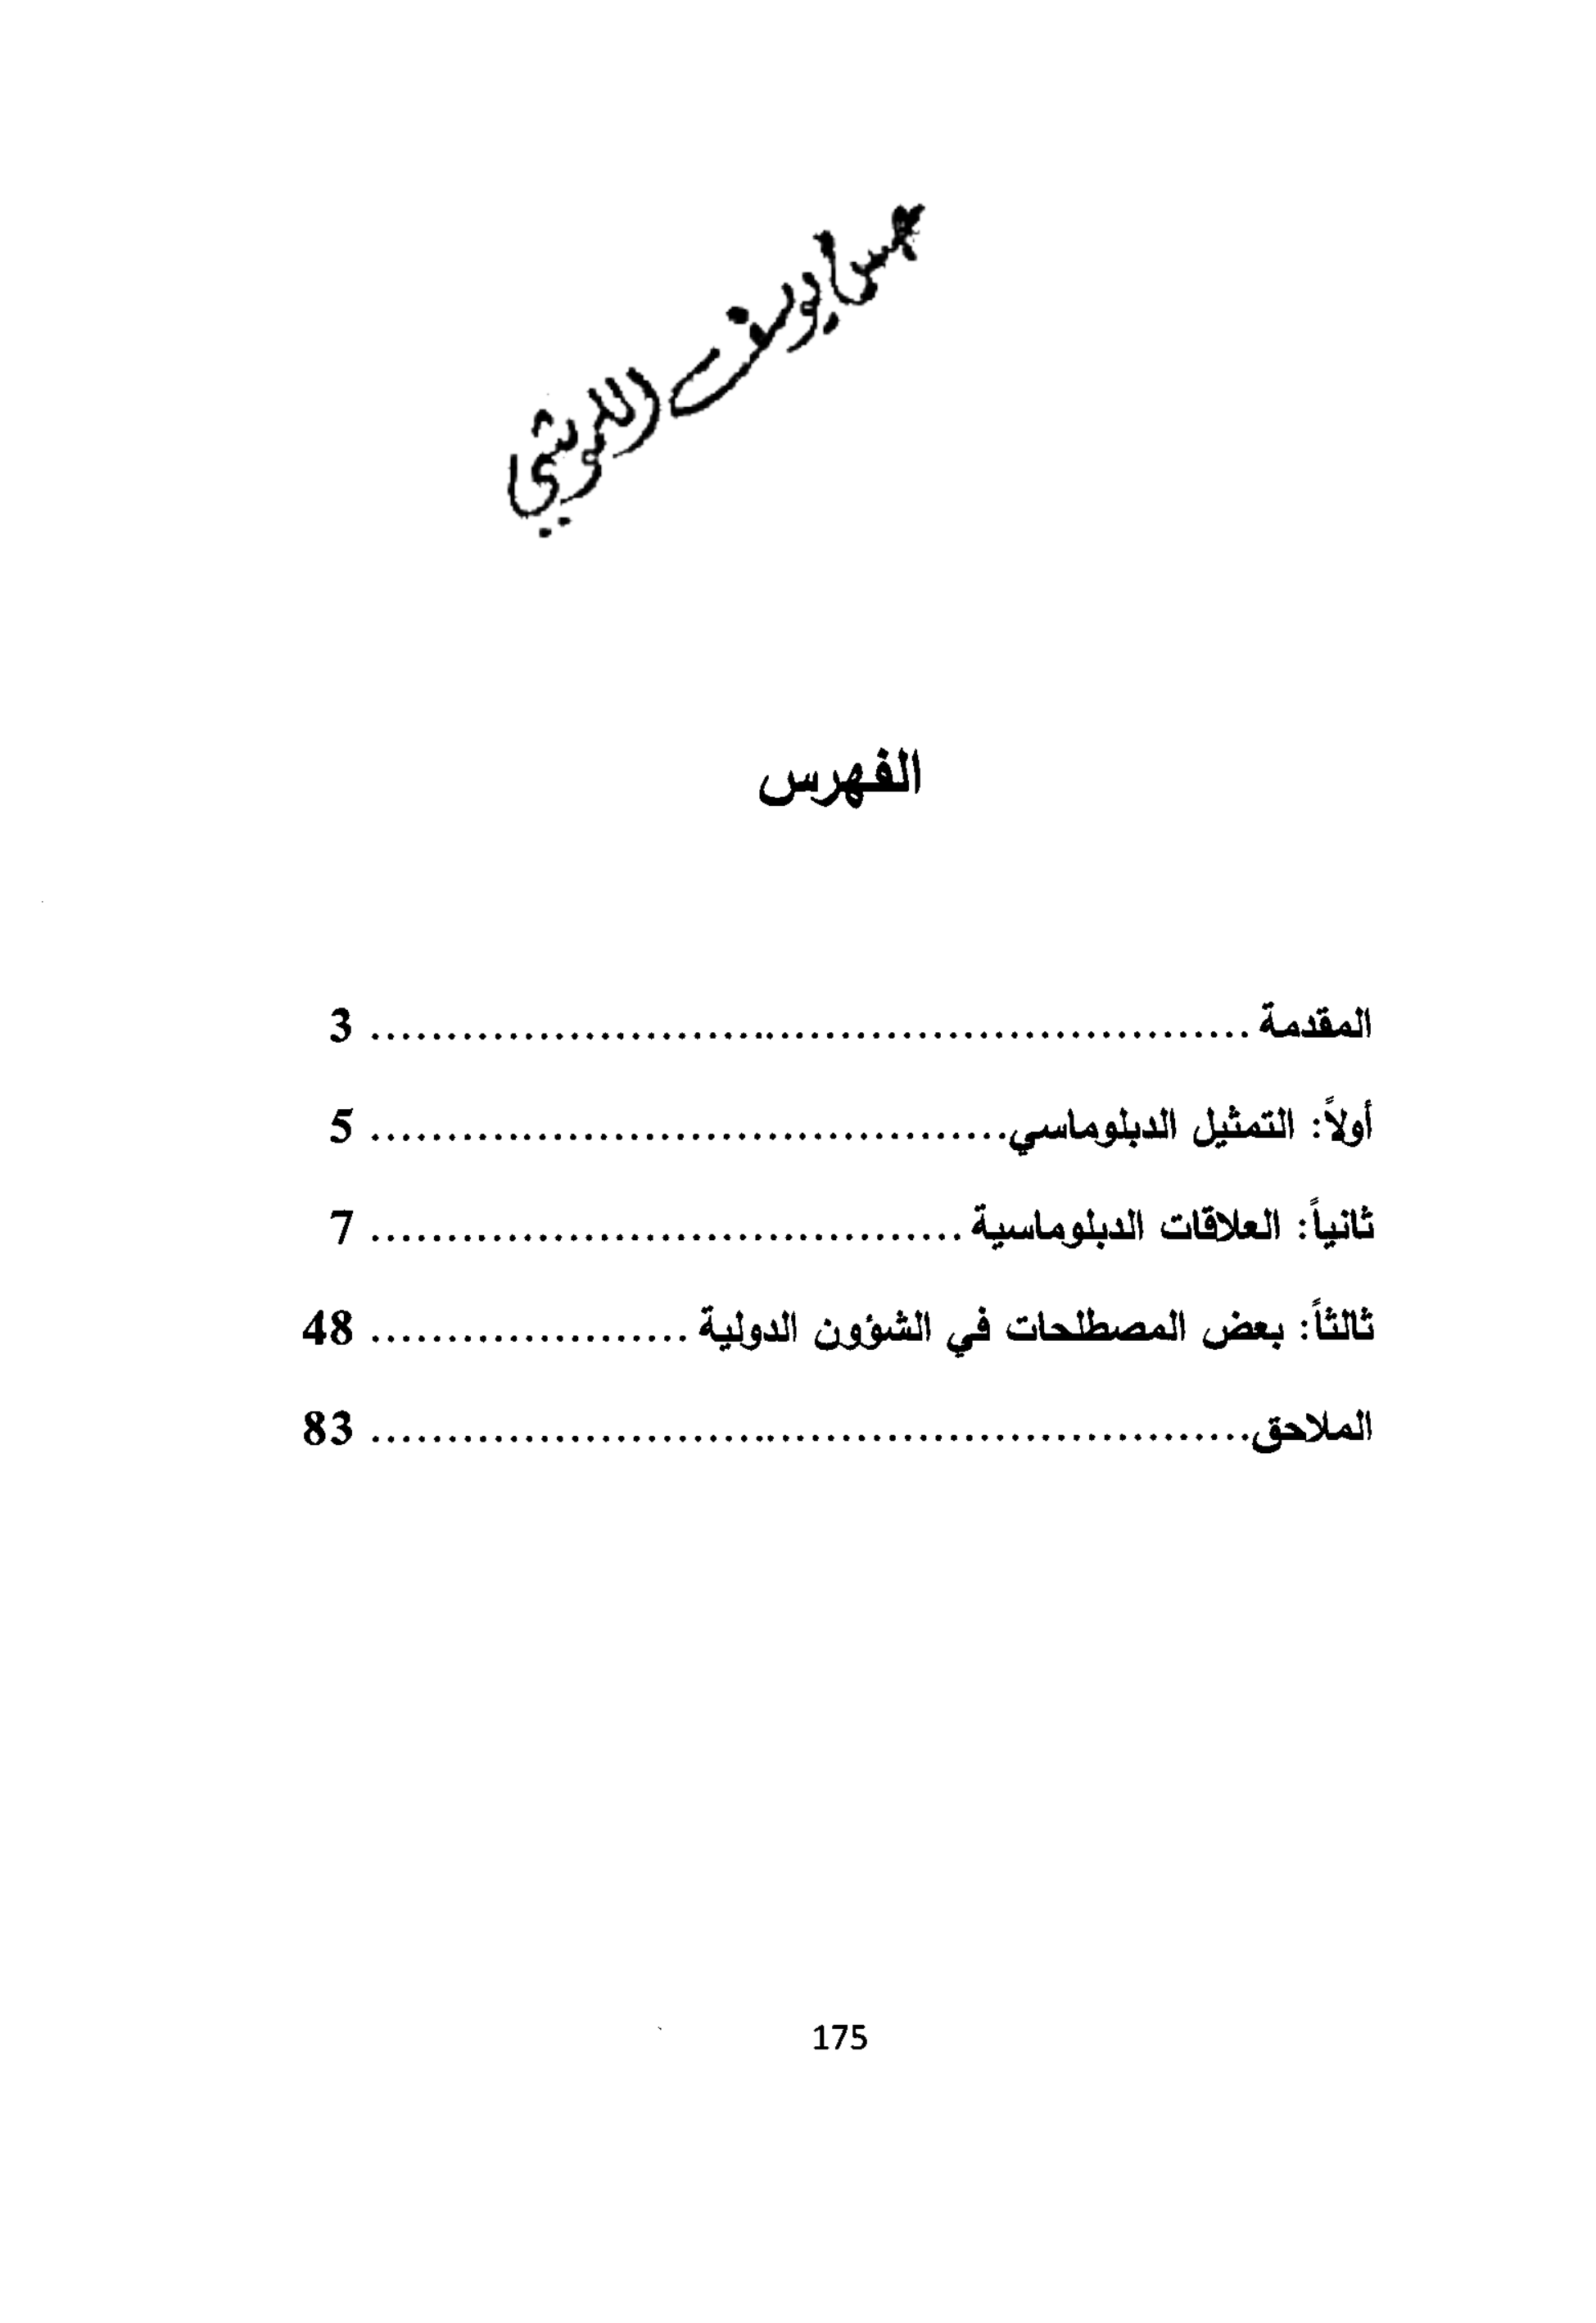 يوسف
الفهرس
المقدمة ......................................................... 3
أولاً: التمثيل الدبلوماسي......................................... 5
ثانياً: العلاقات الدبلوماسية ....................................... 7
ثالثاً: بعض المصطلحات في الشؤون الدولية ..................... 48
الملاحق......................................................... 83
175